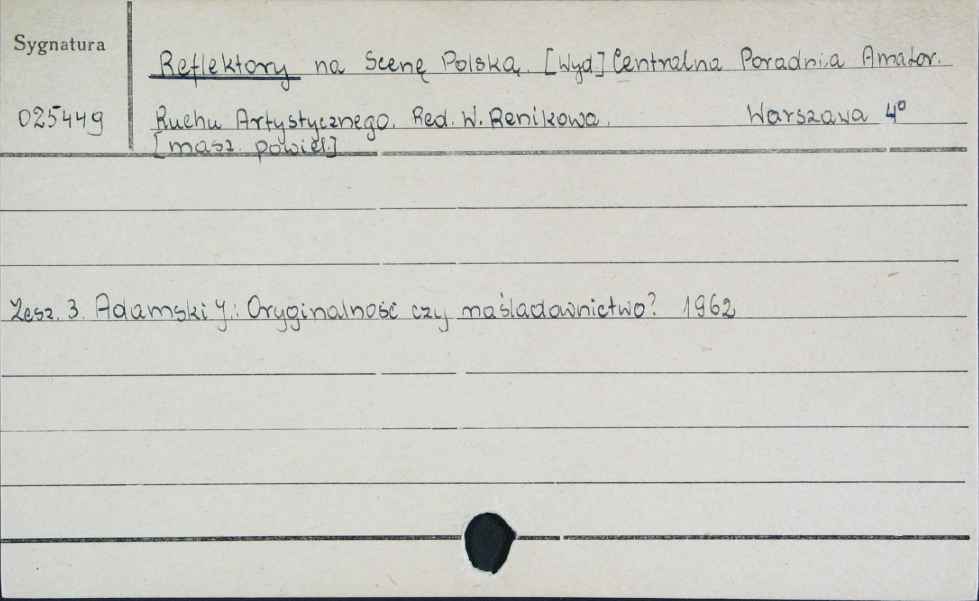 Sygnatura
Reflektory na Scenę Polską. [Wyd] Centralna Poradnia Amator.
025449
Ruchu Artystycznego. Red. W. Renikowa. Warszawa 4º
[masz. powiel.]
Zesz. 3. Adamski J.: Oryginalność czy naśladownictwo? 1962